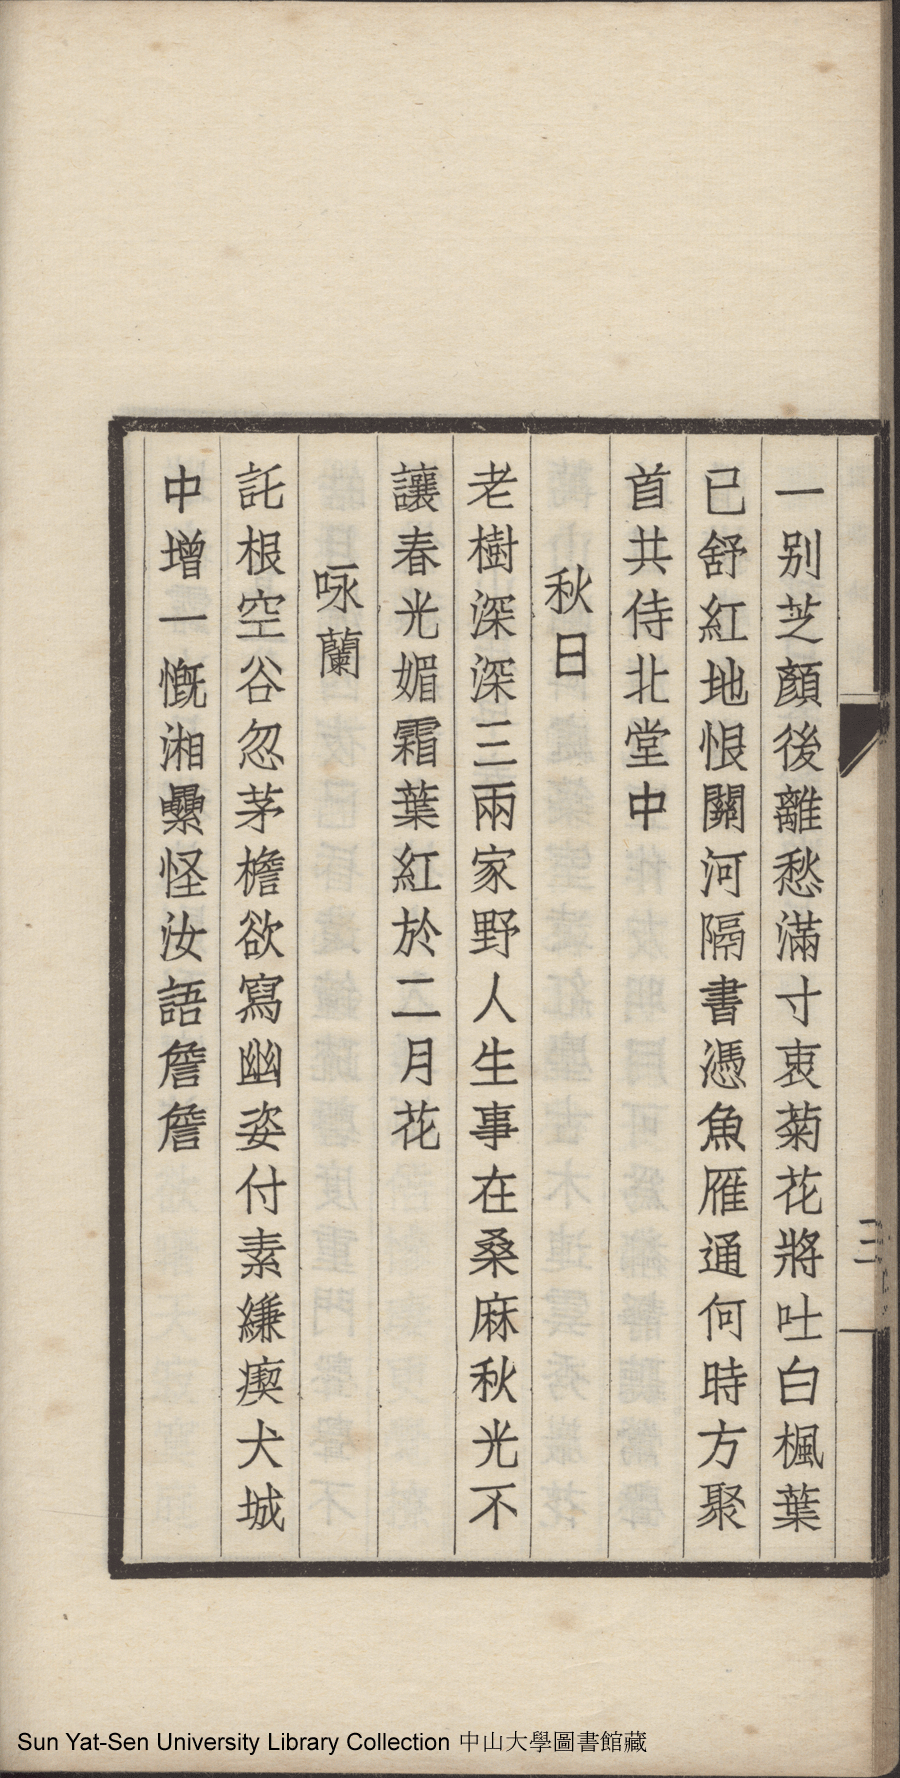 一别芝顏後離愁滿寸衷菊花將吐白楓葉
已舒紅地恨關河隔書憑魚雁通何時方聚
首共侍北堂中
秋日
老樹深深三兩家野人生事在桑麻秋光不
讓春光媚霜葉紅於二月花
咏蘭
託根空谷忽茅檐欲寫幽姿付素縑瘈犬城
中增一慨湘纍怪汝語詹詹
三
Sun Yat-Sen University Library Collection 中山大學圖書館藏